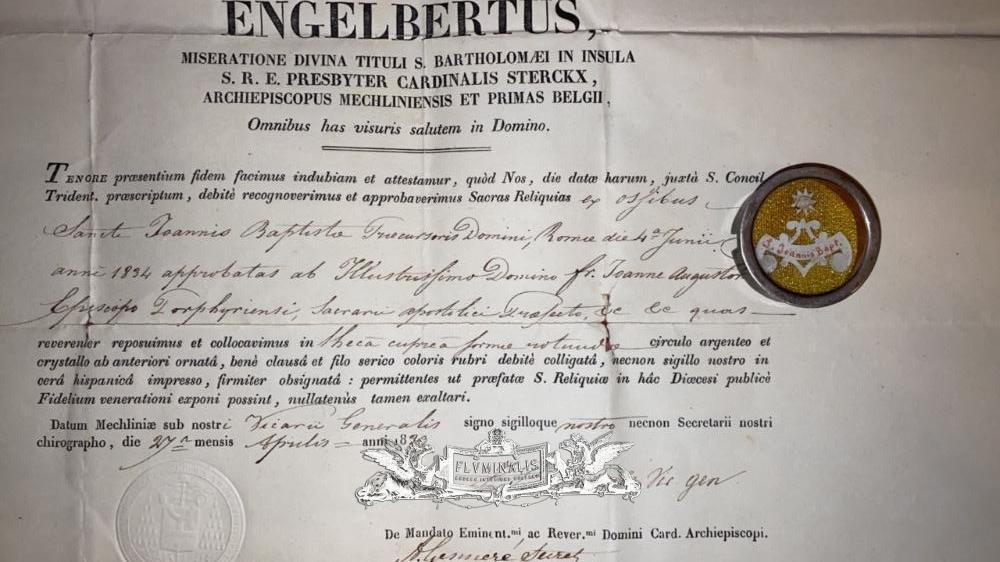 ENGELBERTUS,
MISERATIONE DIVINA TITULI S. BARTHOLOMÆI IN INSULA
S. R. E. PRESBYTER CARDINALIS STERCKX,
ARCHIEPISCOPUS MECHLINIENSIS ET PRIMAS BELGII,
Omnibus has visuris salutem in Domino.
TENORE præsentium fidem facimus indubiam et attestamur, quòd Nos, die datæ harum, juxtà S. Concil.
Trident. præscriptum, debitè recognoverimus et approbaverimus Sacras Reliquias ex ossibus
Sancti Joannis Baptistæ Præcursoris Domini, Romæ die 4ª Junii
anni 1834 approbatas ab Illustrissimo Domino fr. Joanne Augustino
Episcopo Porphyriensi, Sacrarii apostolici Præfecto, &c &c quas
reverenter reposuimus et collocavimus in theca cuprea formæ rotundæ circulo argenteo et
crystallo ab anteriori ornatâ, benè clausâ et filo serico coloris rubri debitè colligatâ, necnon sigillo nostro in
cerâ hispanicâ impresso, firmiter obsignatâ : permittentes ut præfatæ S. Reliquiæ in hâc Diœcesi publicè
Fidelium venerationi exponi possint, nullatenùs tamen exaltari.
Datum Mechliniæ sub nostri Vicarii Generalis signo sigilloque nostro necnon Secretarii nostri
chirographo, die 27ª mensis Aprilis anni 18
S. Joannis Bapt.
FLVMINALIS
Vic gen
De Mandato Eminent.mi ac Rever.mi Domini Card. Archiepiscopi.